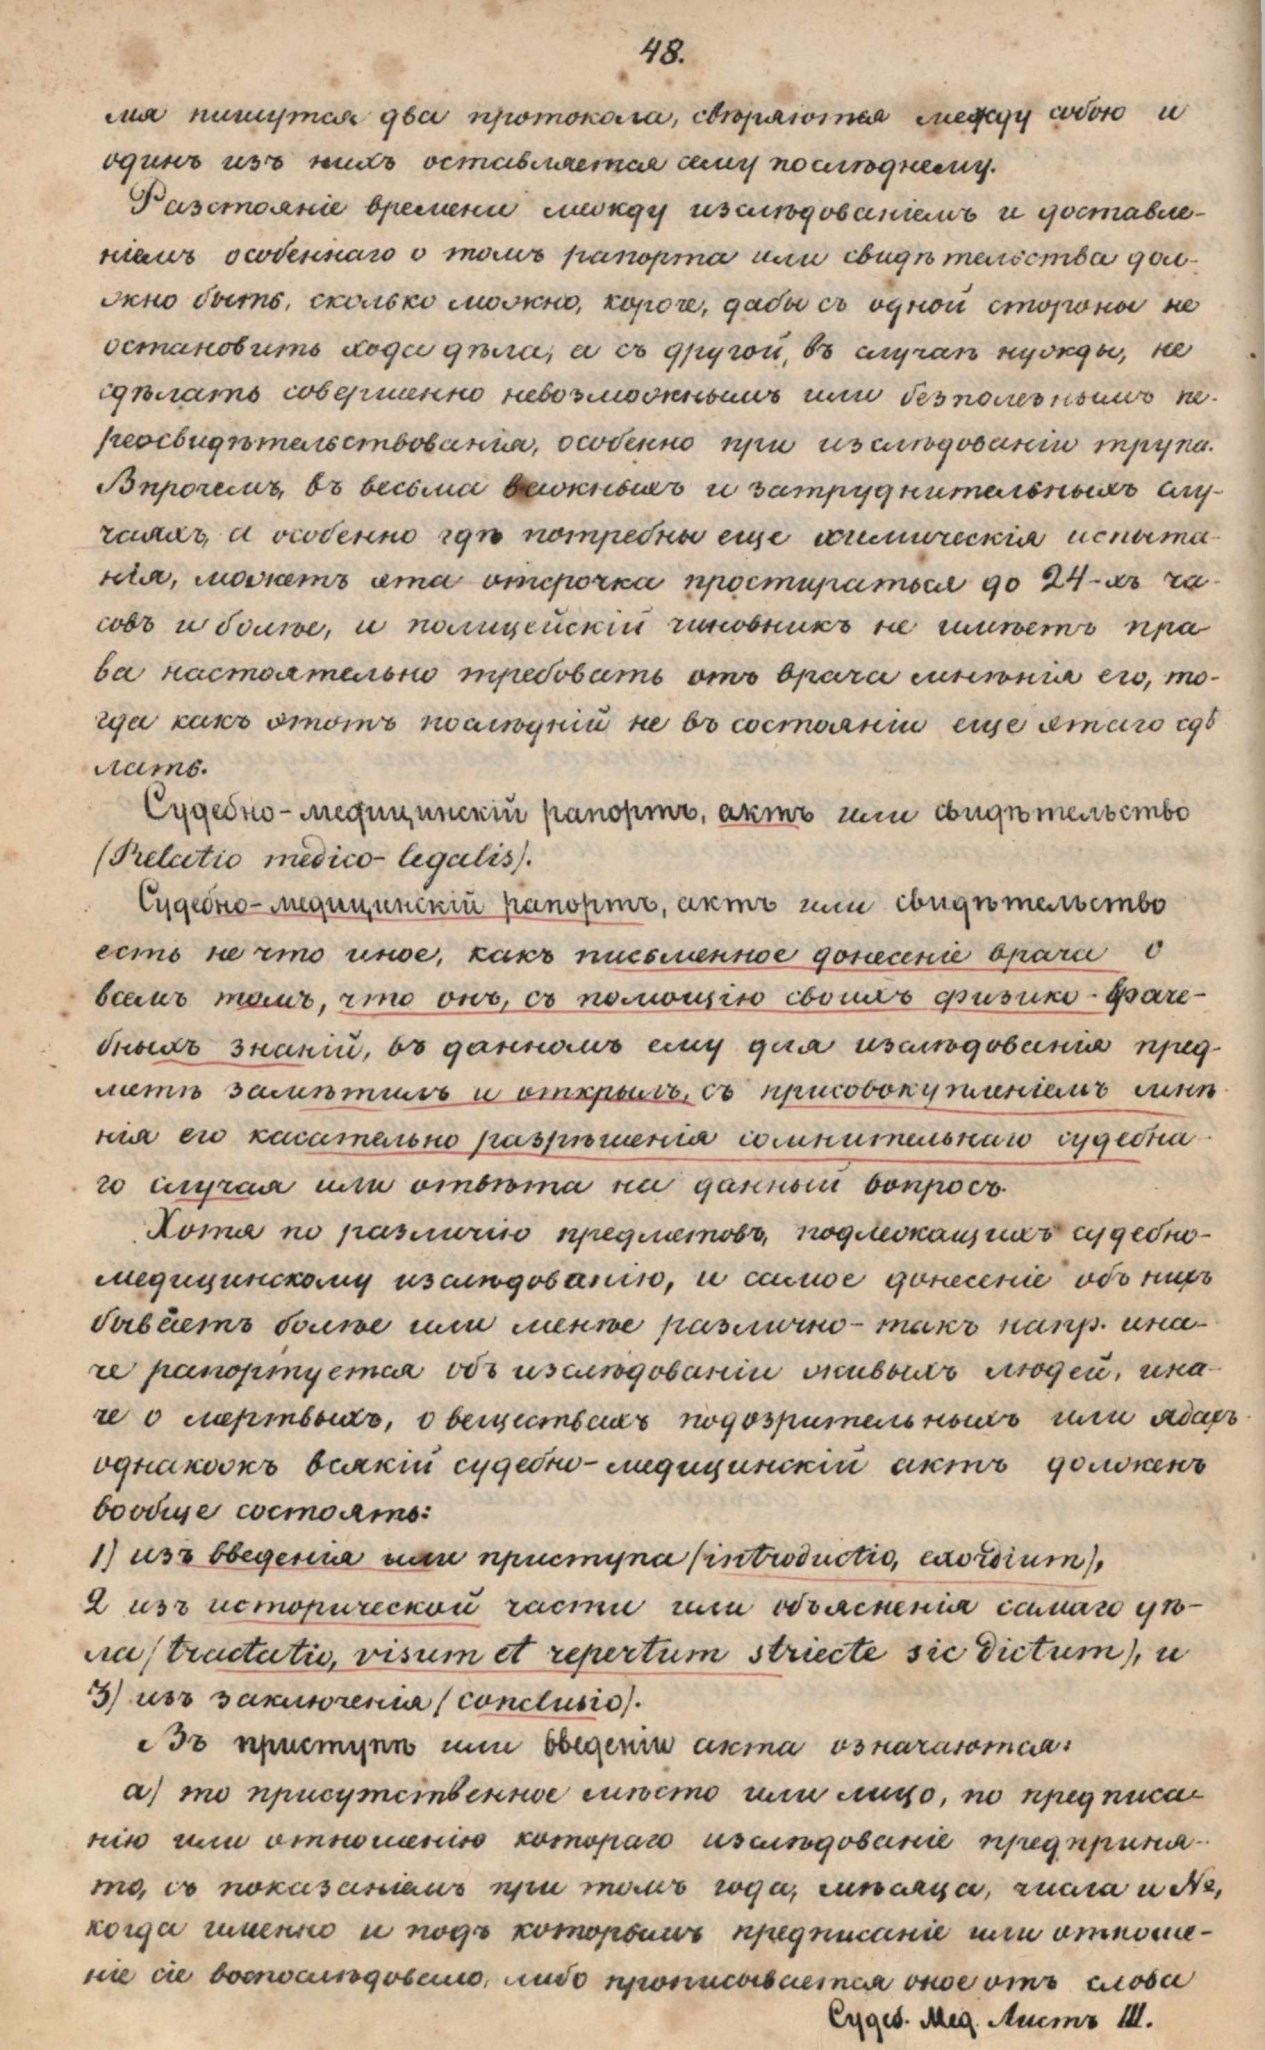 48.
мя пишутся два протокола, свѣряются между собою и
одинъ изъ нихъ оставляется сему послѣднему.
Разстояніе времени между изслѣдованіемъ и доставле-
ніемъ особеннаго о томъ рапорта или свидѣтельства дол-
жно быть, сколько можно, короче, дабы съ одной стороны не
остановить хода дѣла, а съ другой, въ случаѣ нужды, не
сдѣлать совершенно невозможнымъ или безполезнымъ пе-
реосвидѣтельствованія, особенно при изслѣдованіи трупа.
Впрочемъ, въ весьма важныхъ и затруднительныхъ слу-
чаяхъ, а особенно гдѣ потребны еще химическія испыта-
нія, можетъ эта отсрочка простираться до 24-хъ ча-
совъ и болѣе, и полицейскій чиновникъ не имѣетъ пра
ва настоятельно требовать отъ врача мнѣнія его, то-
гда какъ этотъ послѣдній не въ состояніи еще этаго сдѣ
лать.
Судебно-медицинскій рапортъ, актъ или свидѣтельство
(Relatio medico-legalis).
Судебно-медицинскій рапортъ, актъ или свидѣтельство
есть не что иное, какъ письменное донесеніе врача о
всемъ томъ, что онъ, съ помощію своихъ физико-враче-
бныхъ знаній, въ данномъ ему для изслѣдованія пред-
метѣ замѣтилъ и открылъ, съ присовокупленіемъ мнѣ-
нія его касательно разрѣшенія сомнительнаго судебна-
го случая или отвѣта на данный вопросъ.
Хотя по различію предметовъ, подлежащихъ судебно-
медицинскому изслѣдованію, и самое донесеніе объ нихъ
бываетъ болѣе или менѣе различно-такъ напр. ина-
че рапортуется объ изслѣдованіи живыхъ людей, ина-
че о мертвыхъ, о веществахъ подозрительныхъ или ядахъ-
однакожъ всякій судебно-медицинскій актъ долженъ
вообще состоять:
1) изъ введенія или приступа (introductio, exordium),
2 изъ исторической части или объясненія самаго дѣ-
ла (tractatio, visum et repertum striecte sic dictum), и
3) изъ заключенія (conclusio).
Въ приступѣ или введеніи акта означаются:
а) то присутственное мѣсто или лицо, по предписа-
нію или отношенію котораго изслѣдованіе предприня-
то, съ показаніемъ при томъ года, мѣсяца, числа и №,
когда именно и подъ которымъ предписаніе или отноше-
ніе сіе воспослѣдовало, либо прописывается оное отъ слова
Судеб. Мед. Листъ III.